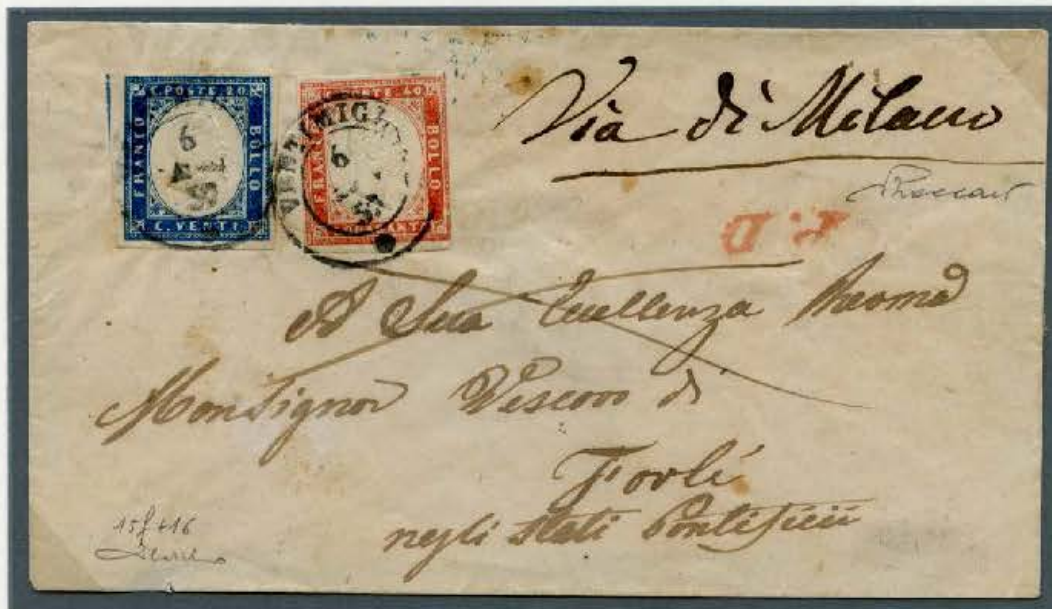 C. POSTE. 20
FRANCO
BOLLO
C. VENTI
C. POSTE. 40
FRANCO
BOLLO
Via di Milano
P. D
A Sua Eccellenza Revma
Monsignor Vescovo di
Forlì
negli Stati Pontificii
15f+16